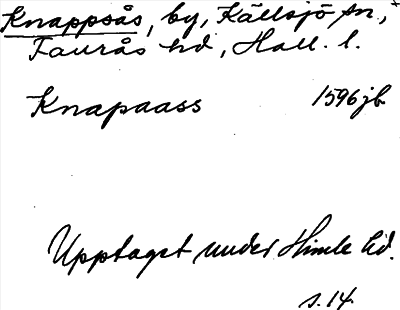 Knappsås, by, Källsjö sn.,+
Faurås hd, Hall. l.
Knapaass 1596 jb.
Upptaget under Himle hd.
s. 14.